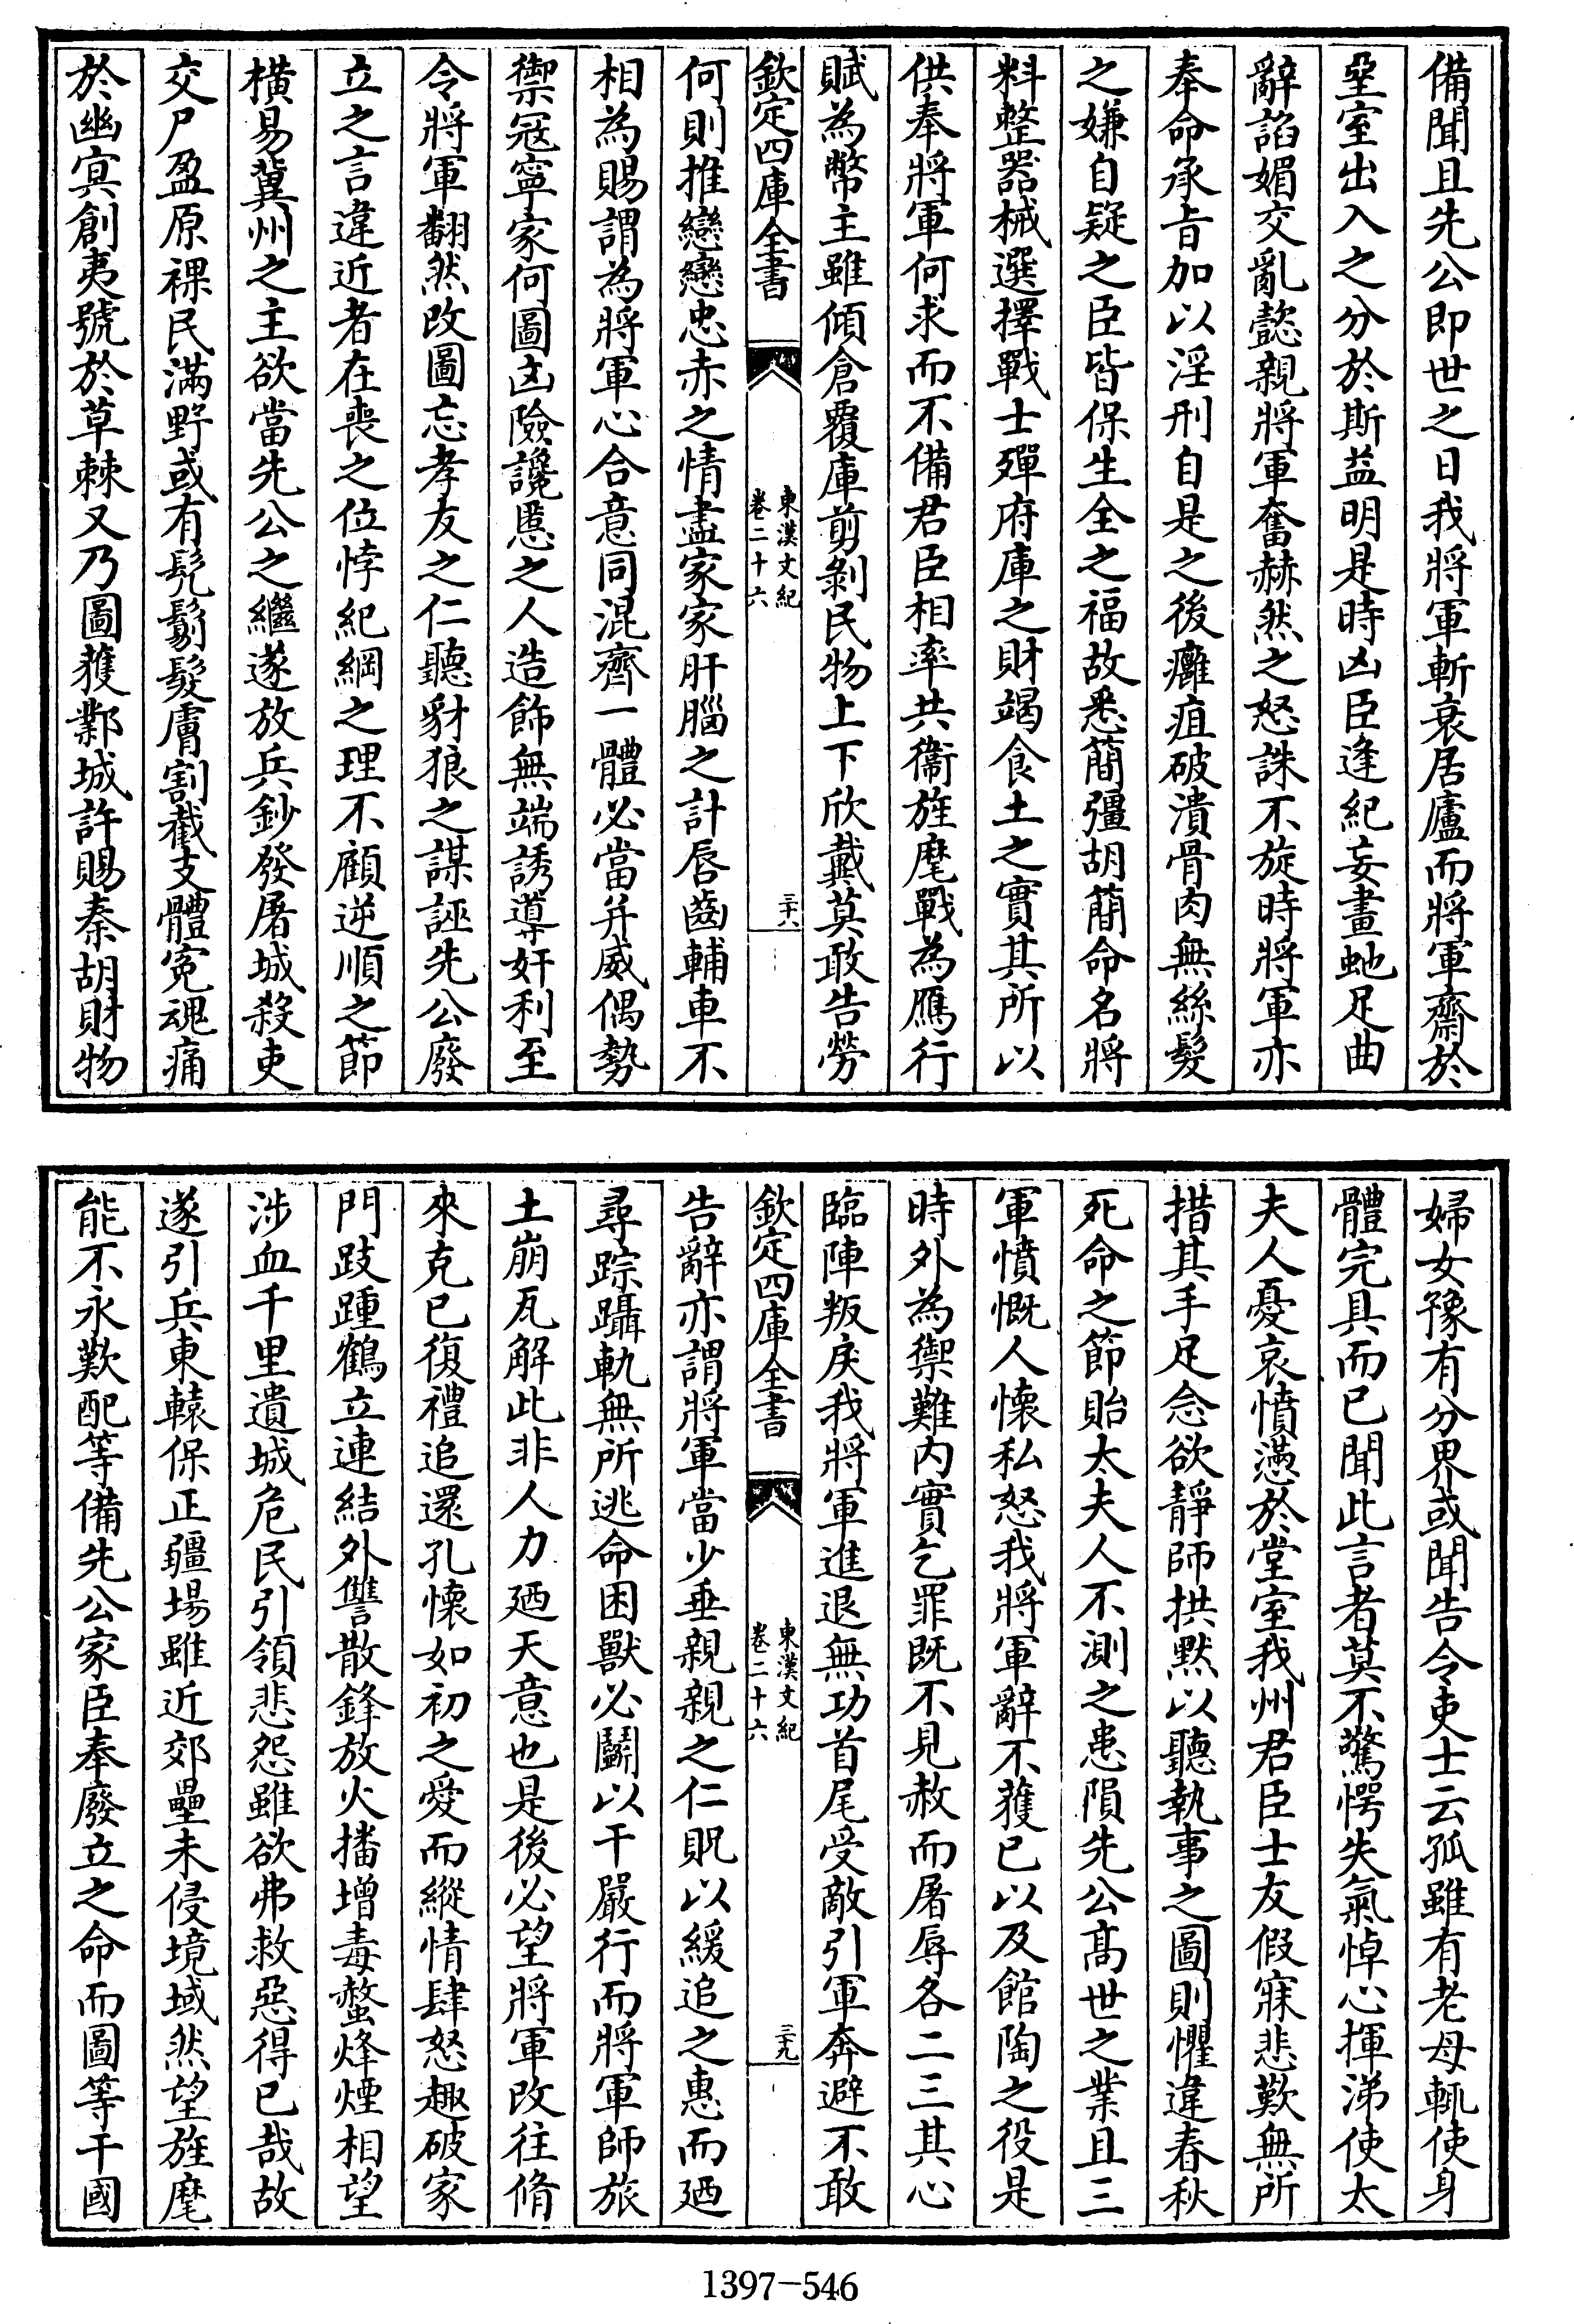 備聞且先公即世之日我將軍斬衰居廬而將軍齋於
堊室出入之分於斯益明是時凶臣逢紀妄畫虵足曲
辭諂媚交亂懿親將軍奮赫然之怒誅不旋時將軍亦
奉命承旨加以淫刑自是之後癰疽破潰骨肉無絲髮
之嫌自疑之臣皆保生全之福故悉簡彊胡簡命名將
料整器械選擇戰士殫府庫之財竭食土之實其所以
供奉將軍何求而不備君臣相率共衞旌麾戰為鴈行
賦為幣主雖傾倉覆庫剪剝民物上下欣戴莫敢告勞
欽定四庫全書
東漢文紀
卷二十六
三十八
何則推戀戀忠赤之情盡家家肝腦之計唇齒輔車不
相為賜謂為將軍心合意同混齊一體必當并威偶勢
禦冦寧家何圖凶險讒慝之人造飾無端誘導奸利至
令將軍翻然改圖忘孝友之仁聽豺狼之謀誣先公廢
立之言違近者在喪之位悖紀綱之理不顧逆順之節
橫易冀州之主欲當先公之繼遂放兵鈔發屠城殺吏
交尸盈原裸民滿野或有髡鬀髮膚割截支體寃魂痛
於幽冥創夷號於草棘又乃圖獲鄴城許賜秦胡財物
婦女豫有分界或聞告令吏士云孤雖有老母輒使身
體完具而已聞此言者莫不驚愕失氣悼心揮涕使太
夫人憂哀憤懣於堂室我州君臣士友假寐悲歎無所
措其手足念欲靜師拱默以聽執事之圖則懼違春秋
死命之節貽太夫人不測之患隕先公髙世之業且三
軍憤慨人懷私怒我將軍辭不獲已以及館陶之役是
時外為禦難内實乞罪既不見赦而屠辱各二三其心
臨陣叛戾我將軍進退無功首尾受敵引軍奔避不敢
欽定四庫全書
東漢文紀
卷二十六
三十九
告辭亦謂將軍當少垂親親之仁貺以緩追之惠而廼
尋踪躡軌無所逃命困獸必鬭以干嚴行而將軍師旅
土崩瓦解此非人力廼天意也是後必望將軍改往脩
來克已復禮追還孔懷如初之愛而縱情肆怒趣破家
門跂踵鶴立連結外讐散鋒放火播增毒螫烽煙相望
涉血千里遺城危民引領悲怨雖欲弗救惡得已哉故
遂引兵東轅保正疆場雖近郊壘未侵境域然望旌麾
能不永歎配等備先公家臣奉廢立之命而圖等干國
1397-546